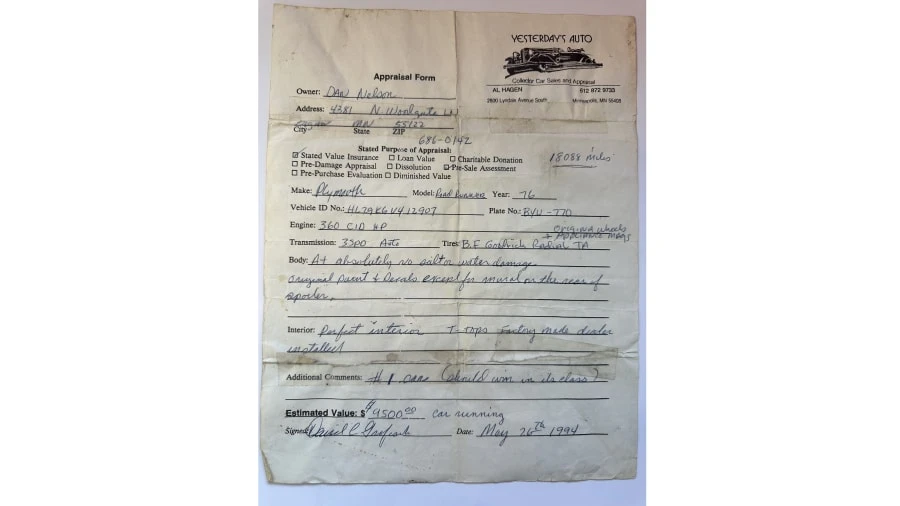 YESTERDAY'S AUTO
Collector Car Sales and Appraisal
AL HAGEN 612 872 9733
2800 Lyndale Avenue South Minneapolis, MN 55408
Appraisal Form
Owner: DAN Nelson
Address: 4381 N. Woodgate Ln
City MN State 55122 ZIP
686-0142
Stated Purpose of Appraisal:
Stated Value Insurance Loan Value Charitable Donation
18088 miles
Pre-Damage Appraisal Dissolution Pre-Sale Assessment
Pre-Purchase Evaluation Diminished Value
Make: Plymouth Model: Road Runner Year: 76
Vehicle ID No.: HL29K6V412907 Plate No.: BVU-770
Engine: 360 CID HP
original wheels
+ Appliance mags
Transmission: 3SPD Auto Tires: B.F Goodrich Radial TA
Body: A+ absolutely no salt or water damage
original paint & Decals except for mural on the rear of
spoiler.
Interior: Perfect interior T-Tops Factory made dealer
installed
Additional Comments: #1 car (should win in its class)
Estimated Value: $ 9500.00 car running
Signed: Date: May 26th 1994